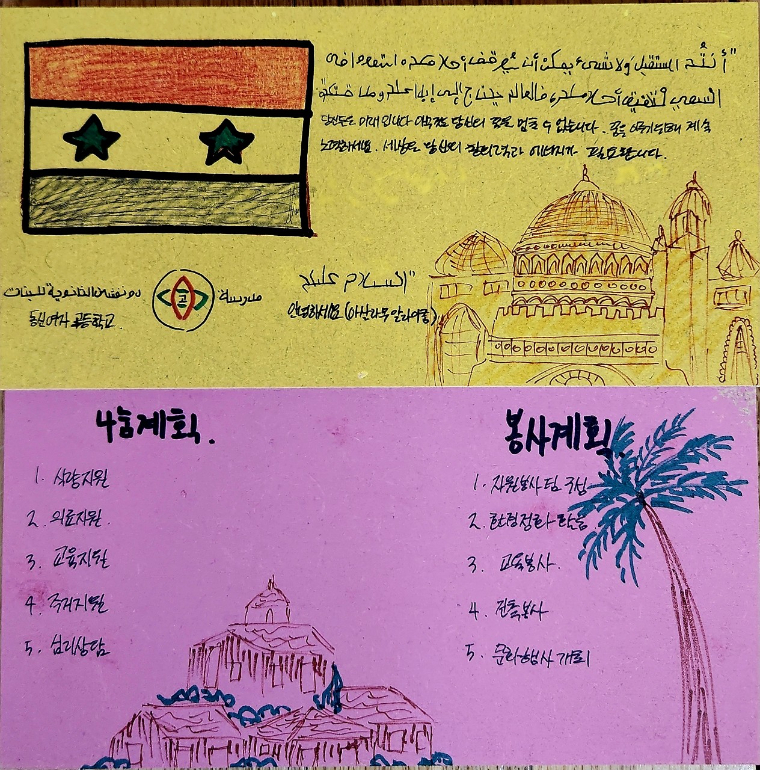 "أنتم المستقبل ولا شيء يمكن أن يوقف أحلامكم استمروا في
السعي لتحقيق أحلامكم فالعالم يحتاج إلى إبداعكم وطاقتكم
당신들은 미래입니다 아무것도 당신의 꿈을 막을 수 없습니다. 꿈을 이루기 위해 계속
노력하세요. 세상은 당신의 창의력과 에너지가 필요합니다.
"السلام عليكم
안녕하세요 (아쌀라무 알라이쿰)
مدرسة
للبنات الثانوية
여자 고등학교
나눔계획.
1. 식량지원
2. 의료지원.
3. 교육지원
4. 주거지원
5. 심리상담
봉사계획.
1. 자원봉사팀 구성
2. 환경정화 활동
3. 교육봉사.
4. 건축봉사
5. 문화행사 개최